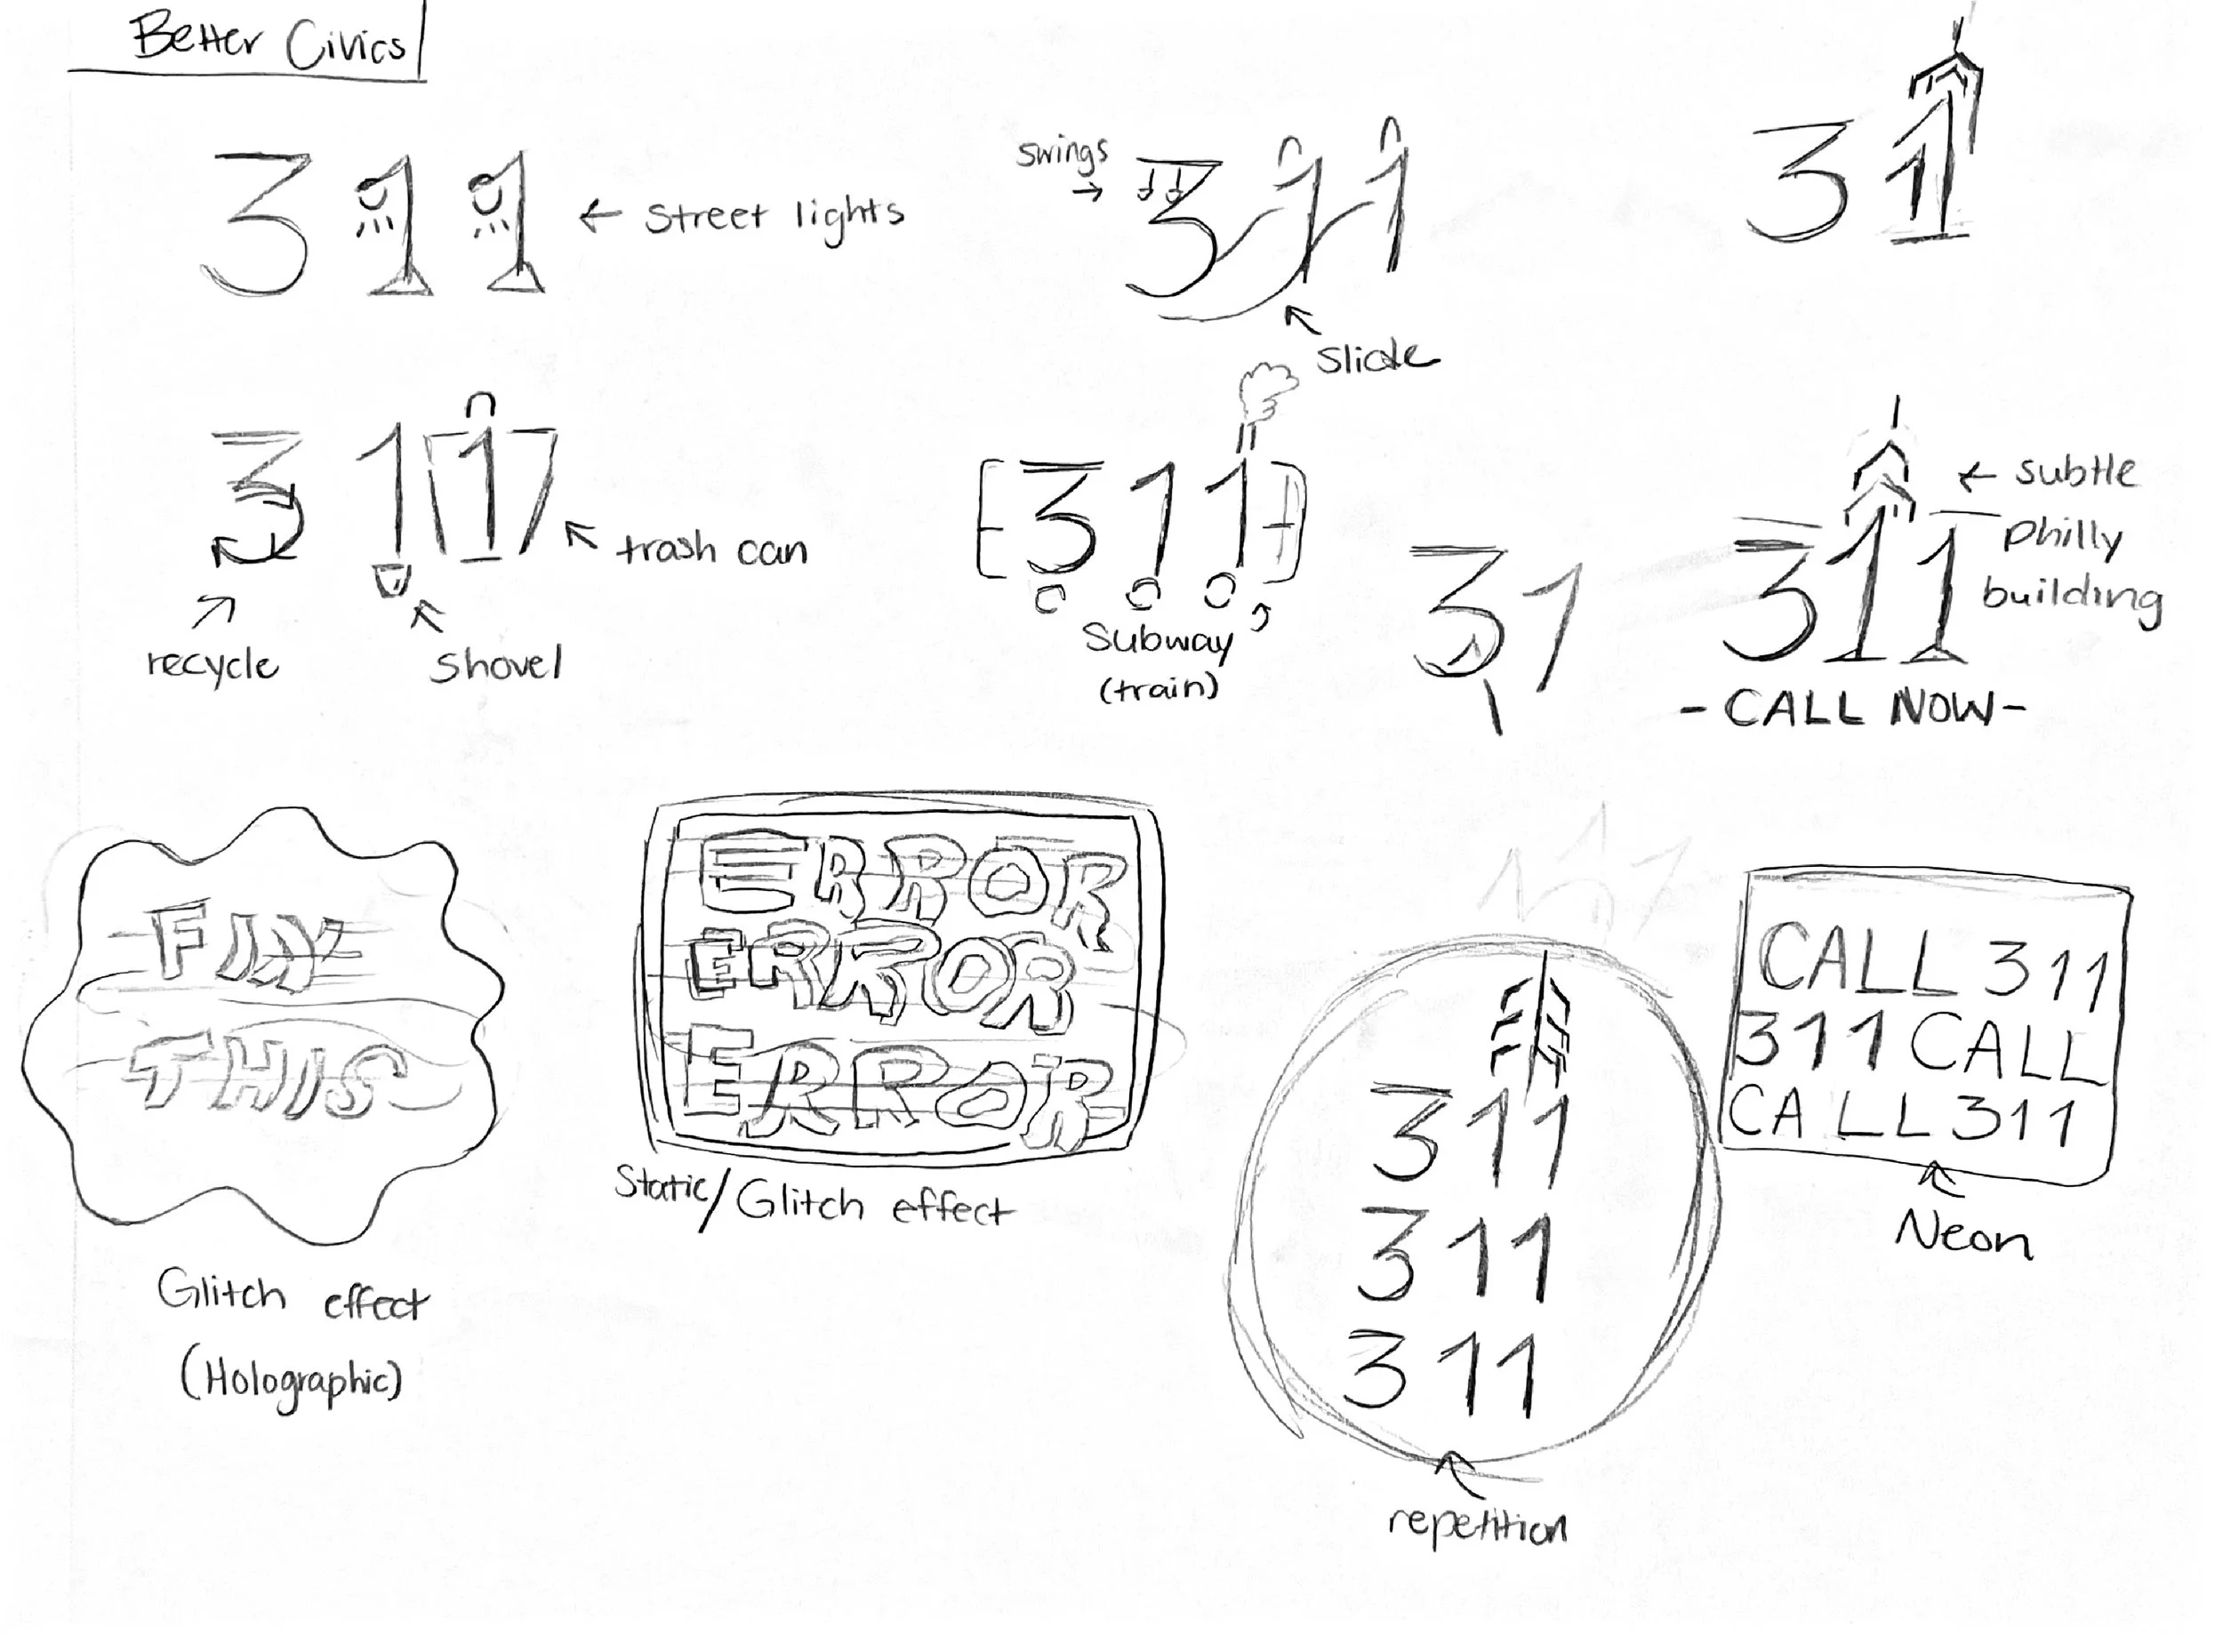 Better Civics
311
← street lights
swings
→
311
slide
31
311
recycle
shovel
trash can
311
Subway
(train)
31
311
← subtle
philly
building
- CALL NOW -
FIX
THIS
Glitch effect
(Holographic)
ERROR
ERROR
ERROR
Static/Glitch effect
311
311
311
repetition
CALL 311
311 CALL
CALL 311
Neon